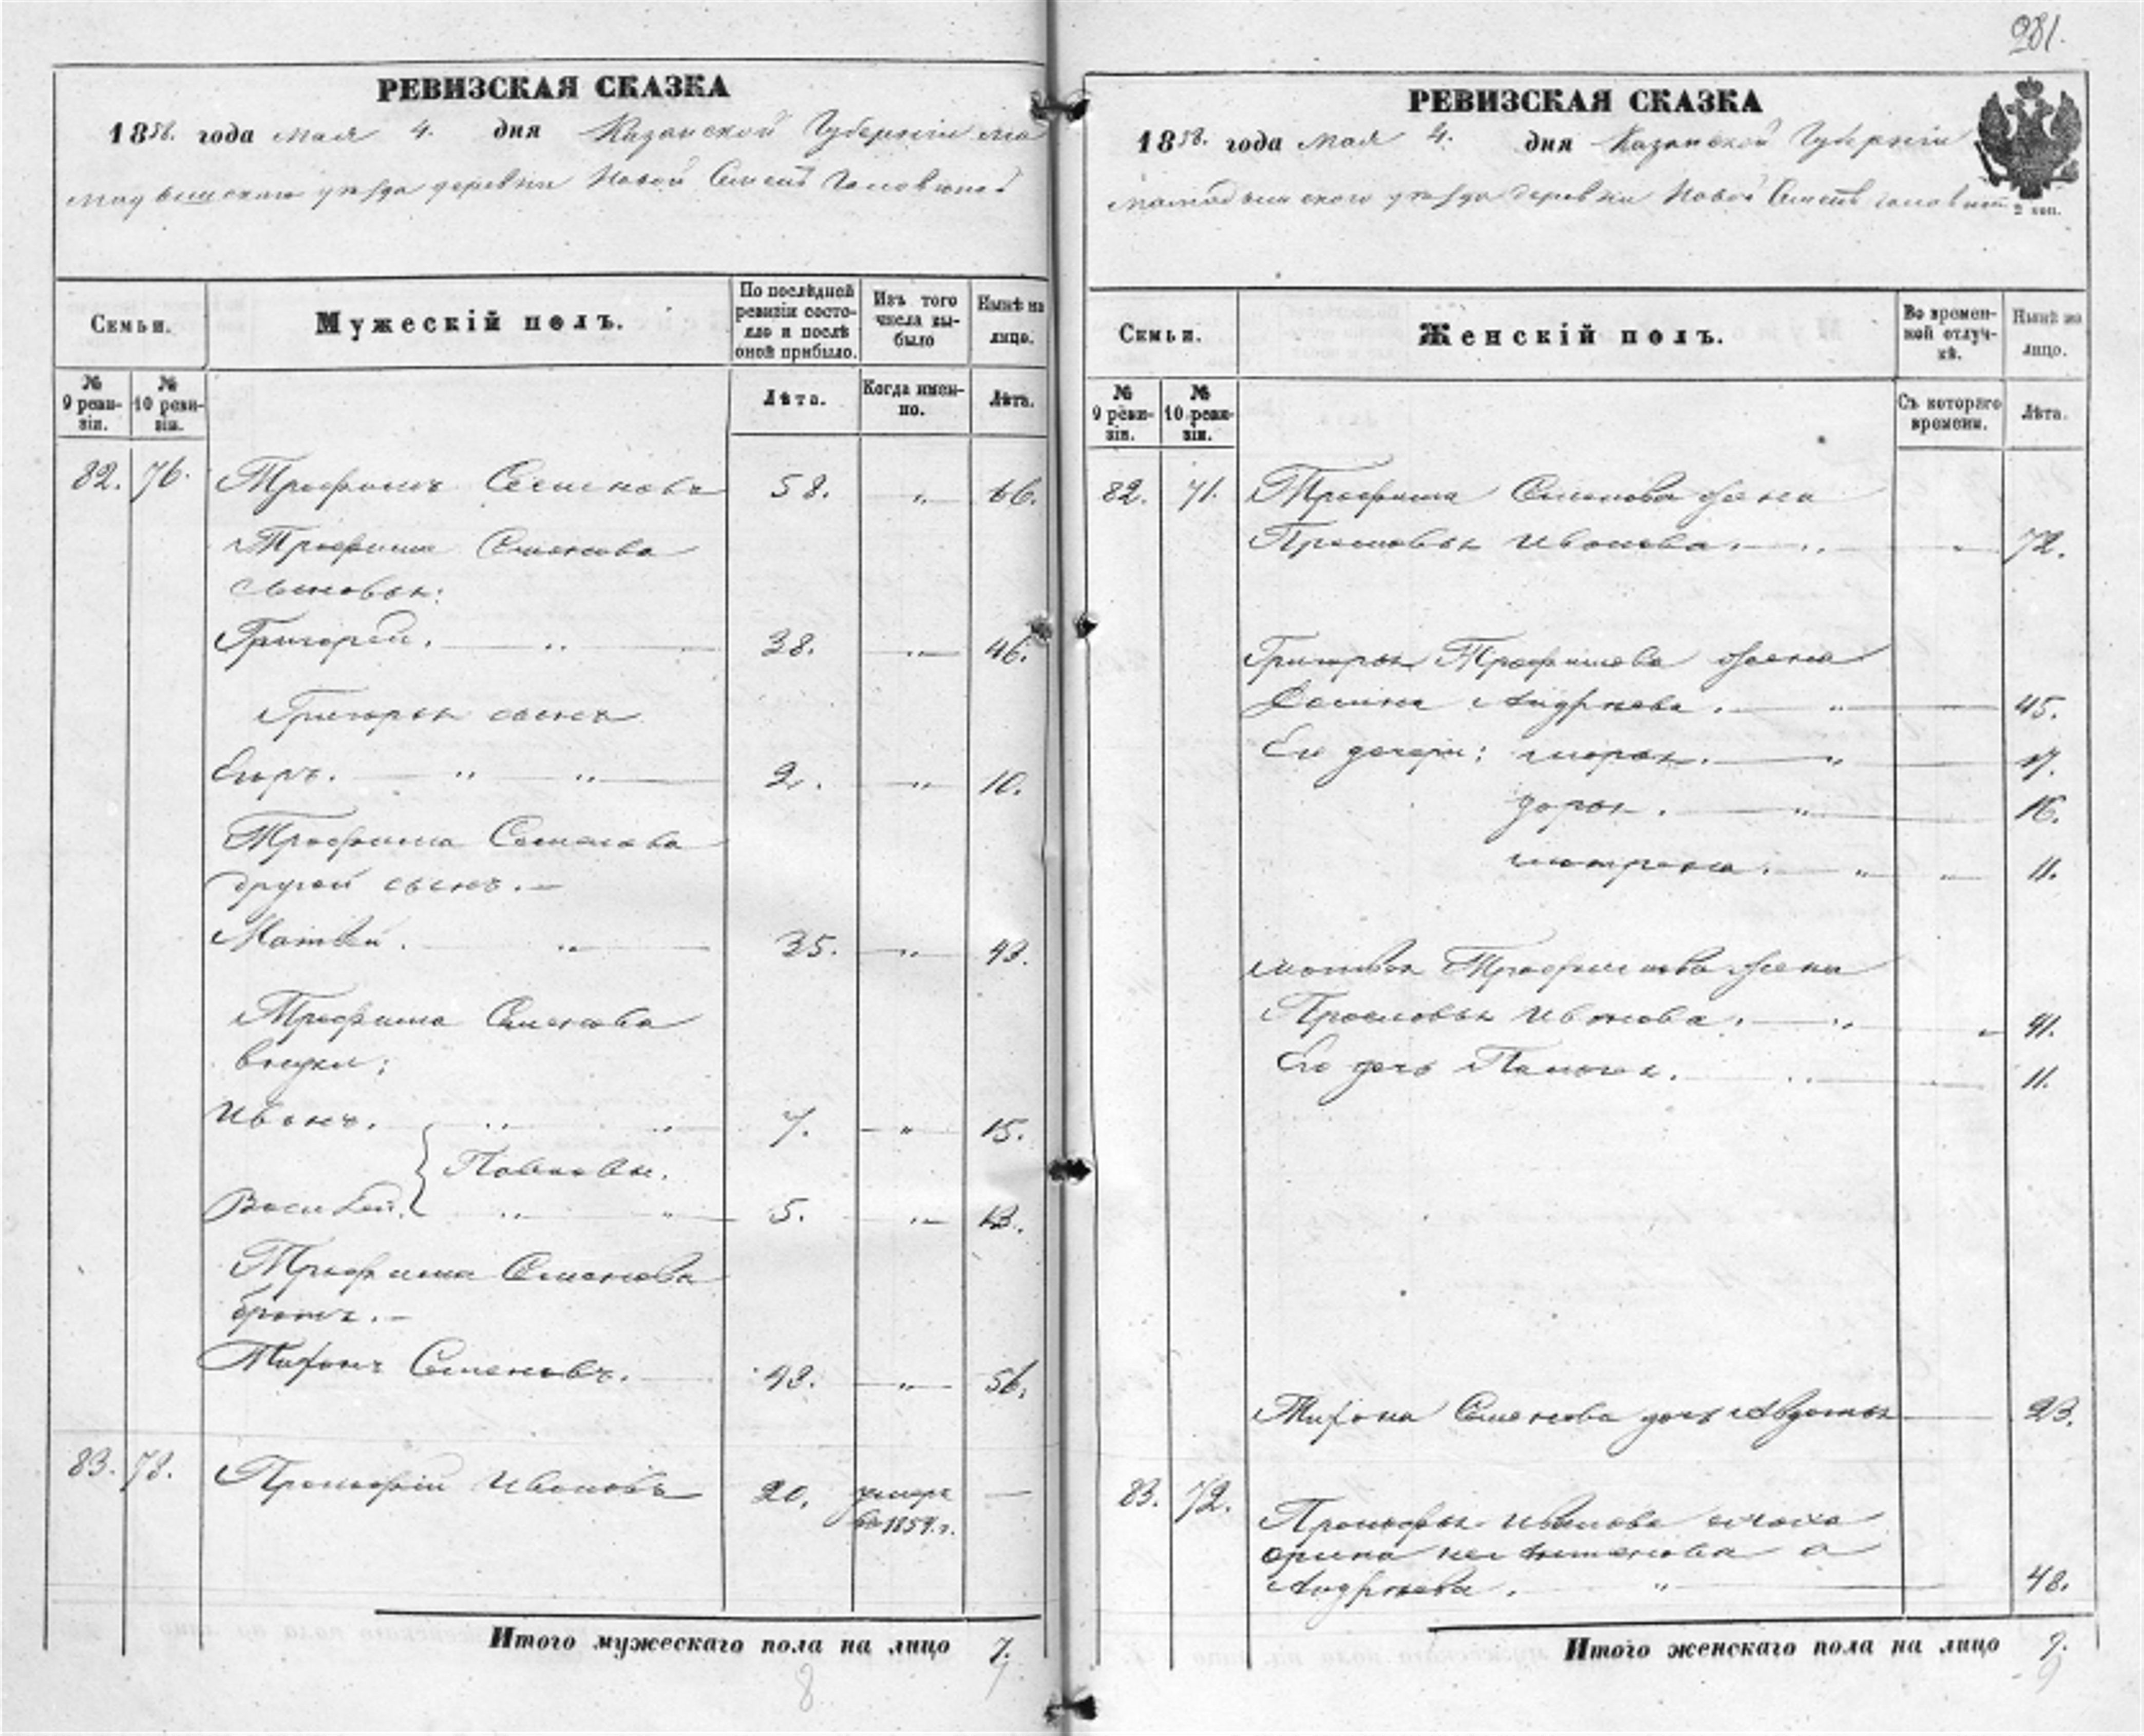 281.
РЕВИЗСКАЯ СКАЗКА
1858. года мая 4. дня Казанской Губерніи ма
мадышскаго уѣзда деревни Новой
Семьи.
Мужескій полъ.
По послѣдней ревизіи состояло и послѣ оной прибыло.
Изъ того числа выбыло
Нынѣ на лицо.
№ 9 ревизіи.
№ 10 ревизіи.
Лѣта.
Когда именно.
Лѣта.
82. 76. Трофимъ Семеновъ 58. „ 66.
Трофима Семенова
сыновья:
Григорей. „ 38. „ 46.
Григорья сынъ
Егоръ. „ „ 2. „ 10.
Трофима Семенова
другой сынъ.
Матвей. „ 35. „ 43.
Трофима Семенова
внуки:
Иванъ. „ „ 7. „ 15.
Павловы.
Василей. „ „ 5. „ 13.
Трофима Семенова
братъ.
Тихонъ Семеновъ. 48. „ 56.
83. 78. Прокофій Ивановъ 20. умеръ —
во 1854. г.
Итого мужескаго пола на лицо 7.
8
РЕВИЗСКАЯ СКАЗКА
1858. года мая 4. дня Казанской Губерніи
мамадышскаго уѣзда деревни Новой
2 коп.
Семьи.
Женскій полъ.
Во временной отлучкѣ.
Нынѣ на лицо.
№ 9 ревизіи.
№ 10 ревизіи.
Съ котораго времени.
Лѣта.
82. 71. Трофима Семенова жена
Прасковья Иванова. „ „ 72.
Григорья Трофимова жена
Андреева. „ 45.
Его дочери: марья. „ 17.
дарья. „ 16.
матрена. „ „ 11.
матвея Трофимова жена
Прасковья Иванова. „ „ 41.
Его дочь Пелагея. „ 11.
Тихона Семенова дочь Авдотья 23.
83. 72. Прокофья Иванова
Арина а
Андреева. „ 48.
Итого женскаго пола на лицо 9.
9